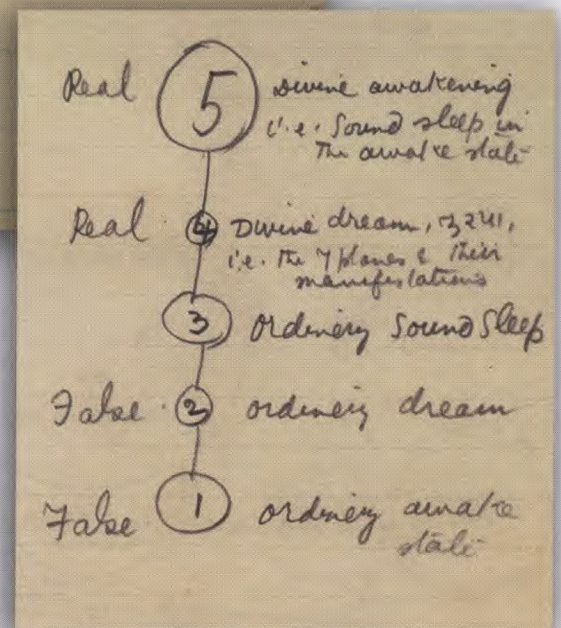 Real 5 Divine awakening
i.e. Sound sleep in
The awake state
Real 4 Divine dream,
i.e. The 7 planes & their
manifestations
3 ordinery Sound Sleep
False 2 ordinery dream
False 1 ordinery awake
state